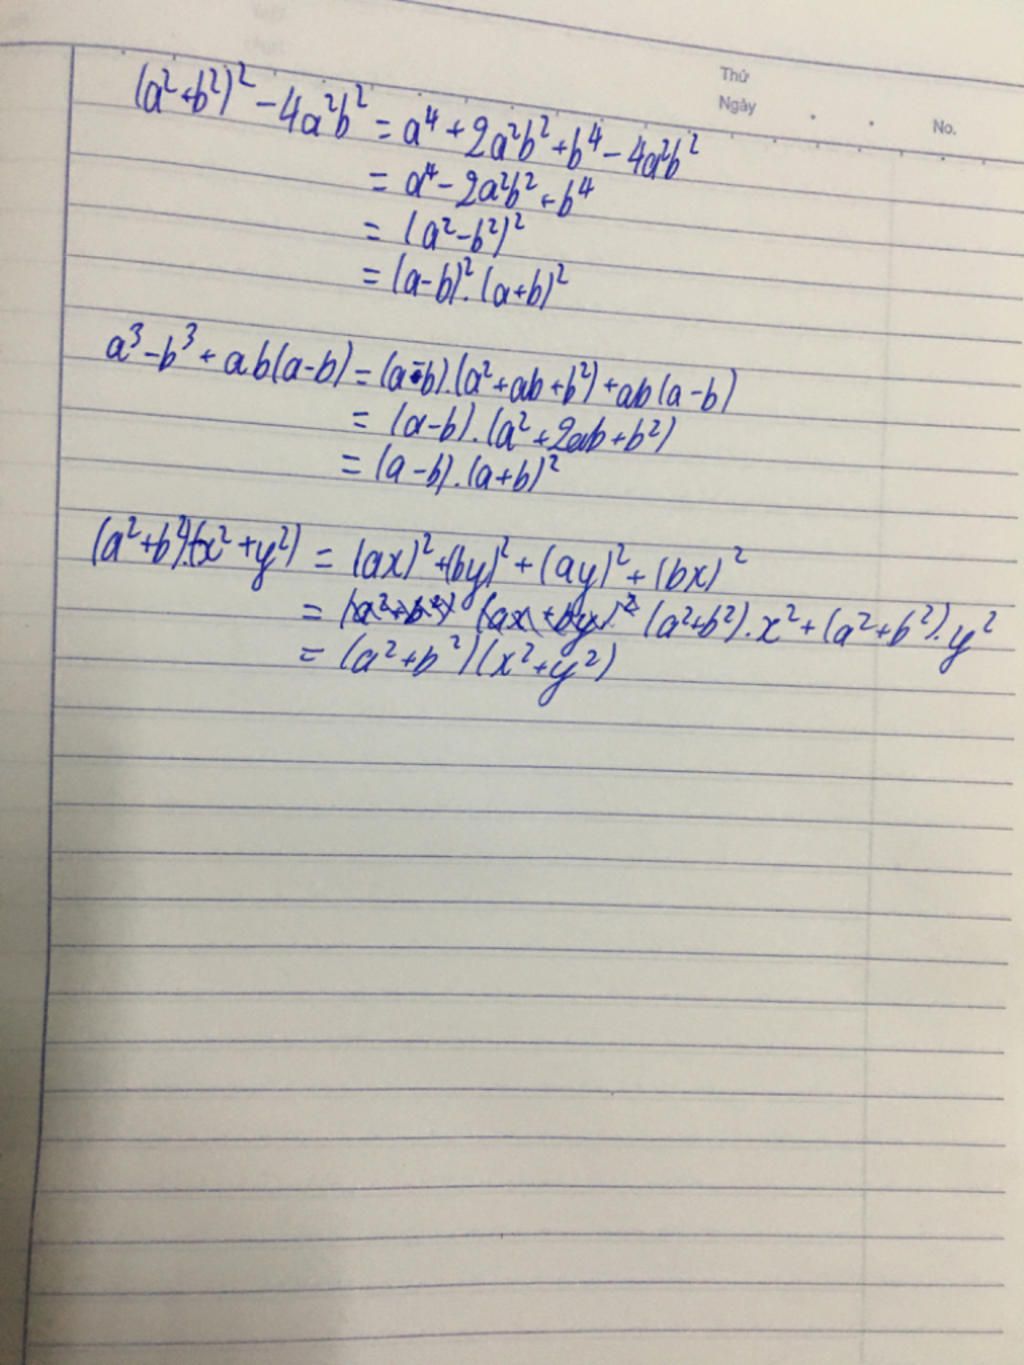 Thứ
Ngày
No.
(a²+b²)² - 4a²b² = a⁴ + 2a²b² + b⁴ - 4a²b²
= a⁴ - 2a²b² + b⁴
= (a² - b²)²
= (a-b)².(a+b)²
a³ - b³ + ab(a-b) = (a-b).(a² + ab + b²) + ab(a-b)
= (a-b).(a² + 2ab + b²)
= (a-b).(a+b)²
(a²+b²).(x²+y²) = (ax)² + (by)² + (ay)² + (bx)²
= (a²+b²).x² + (a²+b²).y²
= (a²+b²)(x²+y²)